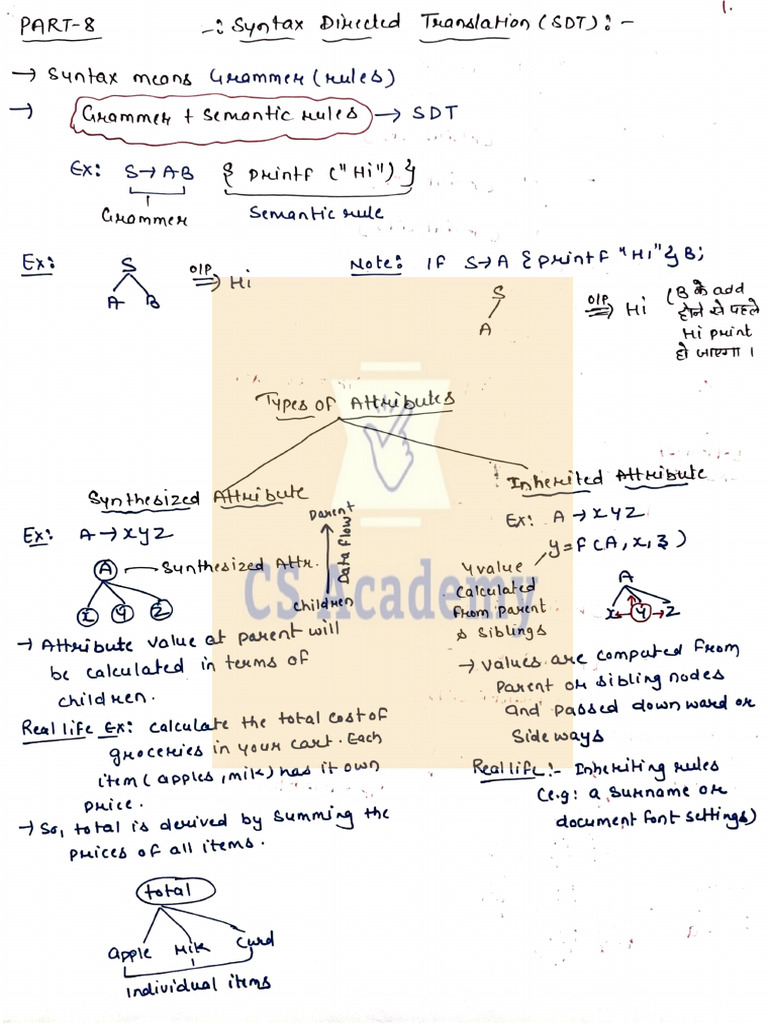 1.
PART-8 -: Syntax Directed Translation (SDT):-
→ Syntax means Grammer (rules)
→ Grammer + Semantic rules → SDT
Ex: S→AB { printf ("Hi") }
Grammer Semantic rule
Ex: S
A B
O/P ⇒ Hi
Note: If S→A { printf "Hi" } B;
S
A
O/P ⇒ Hi
(B के add
होने से पहले
Hi print
हो जाएगा ।
Types of Attributes
Synthesized Attribute
Ex: A→XYZ
A — Synthesized Attr.
X Y Z
Parent
Data flow
children
→ Attribute value at parent will
be calculated in terms of
children.
Real life Ex: Calculate the total cost of
groceries in your cart. Each
item (apples, milk) has it own
price.
→ So, total is derived by summing the
prices of all items.
total
Apple Milk Curd
Individual items
Inherited Attribute
Ex: A→XYZ
y=f(A, x, z)
Y value
calculated
from parent
& siblings
A
X Y Z
→ values are computed from
Parent or sibling nodes
and passed downward or
Side ways
Real life:- Inheriting rules
(e.g: a surname or
document font settings)
CS Academy